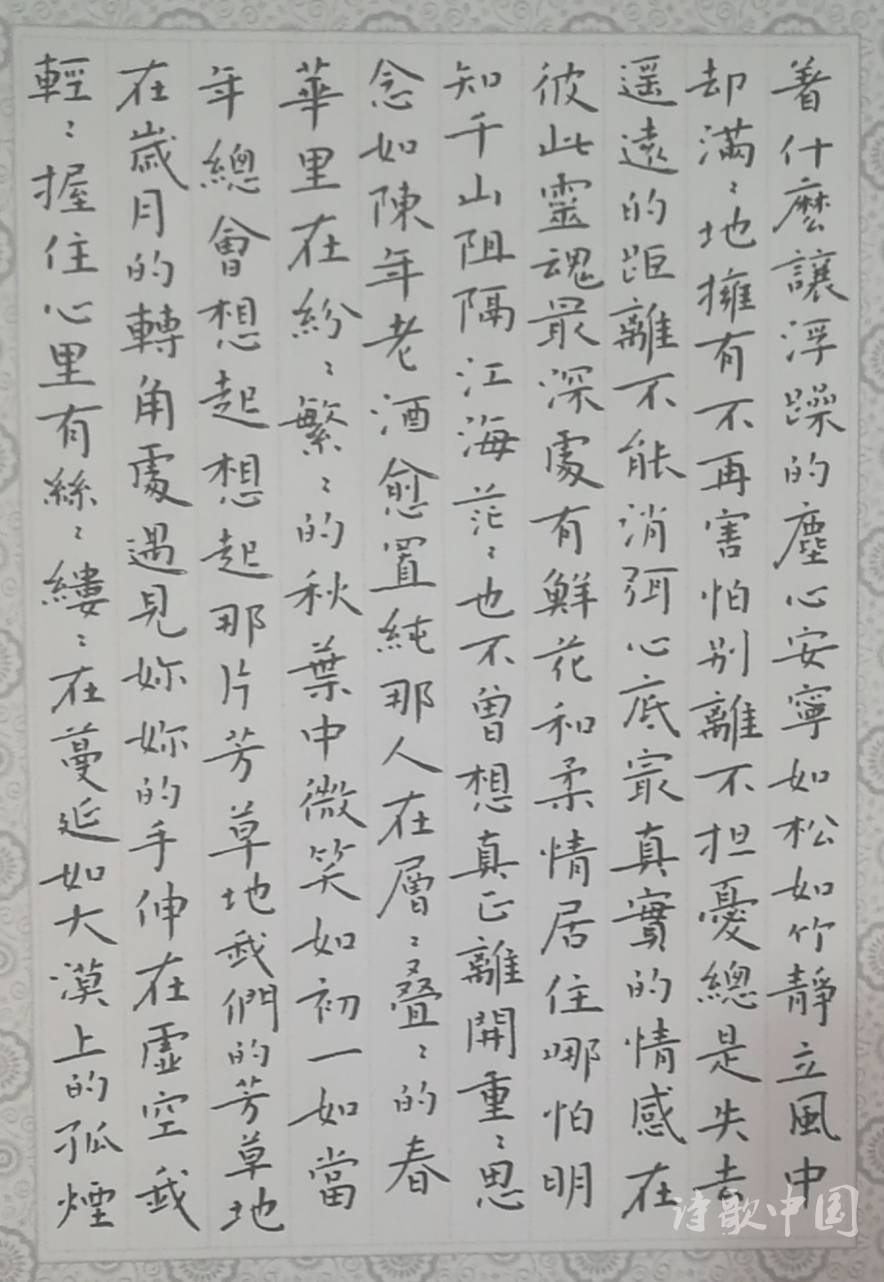 着什麼讓浮躁的塵心安寧如松如竹靜立風中
却滿〻地擁有不再害怕别離不担憂總是失去
遥遠的距離不能消弭心底最真實的情感在
彼此靈魂最深處有鮮花和柔情居住哪怕明
知千山阻隔江海茫〻也不曾想真正離開重〻思
念如陳年老酒愈置純那人在層〻叠〻的春
華里在紛〻繁〻的秋葉中微笑如初一如當
年總會想起想起那片芳草地我們的芳草地
在歲月的轉角處遇見妳妳的手伸在虚空我
輕〻握住心里有絲〻縷〻在蔓延如大漠上的孤煙
诗歌中国